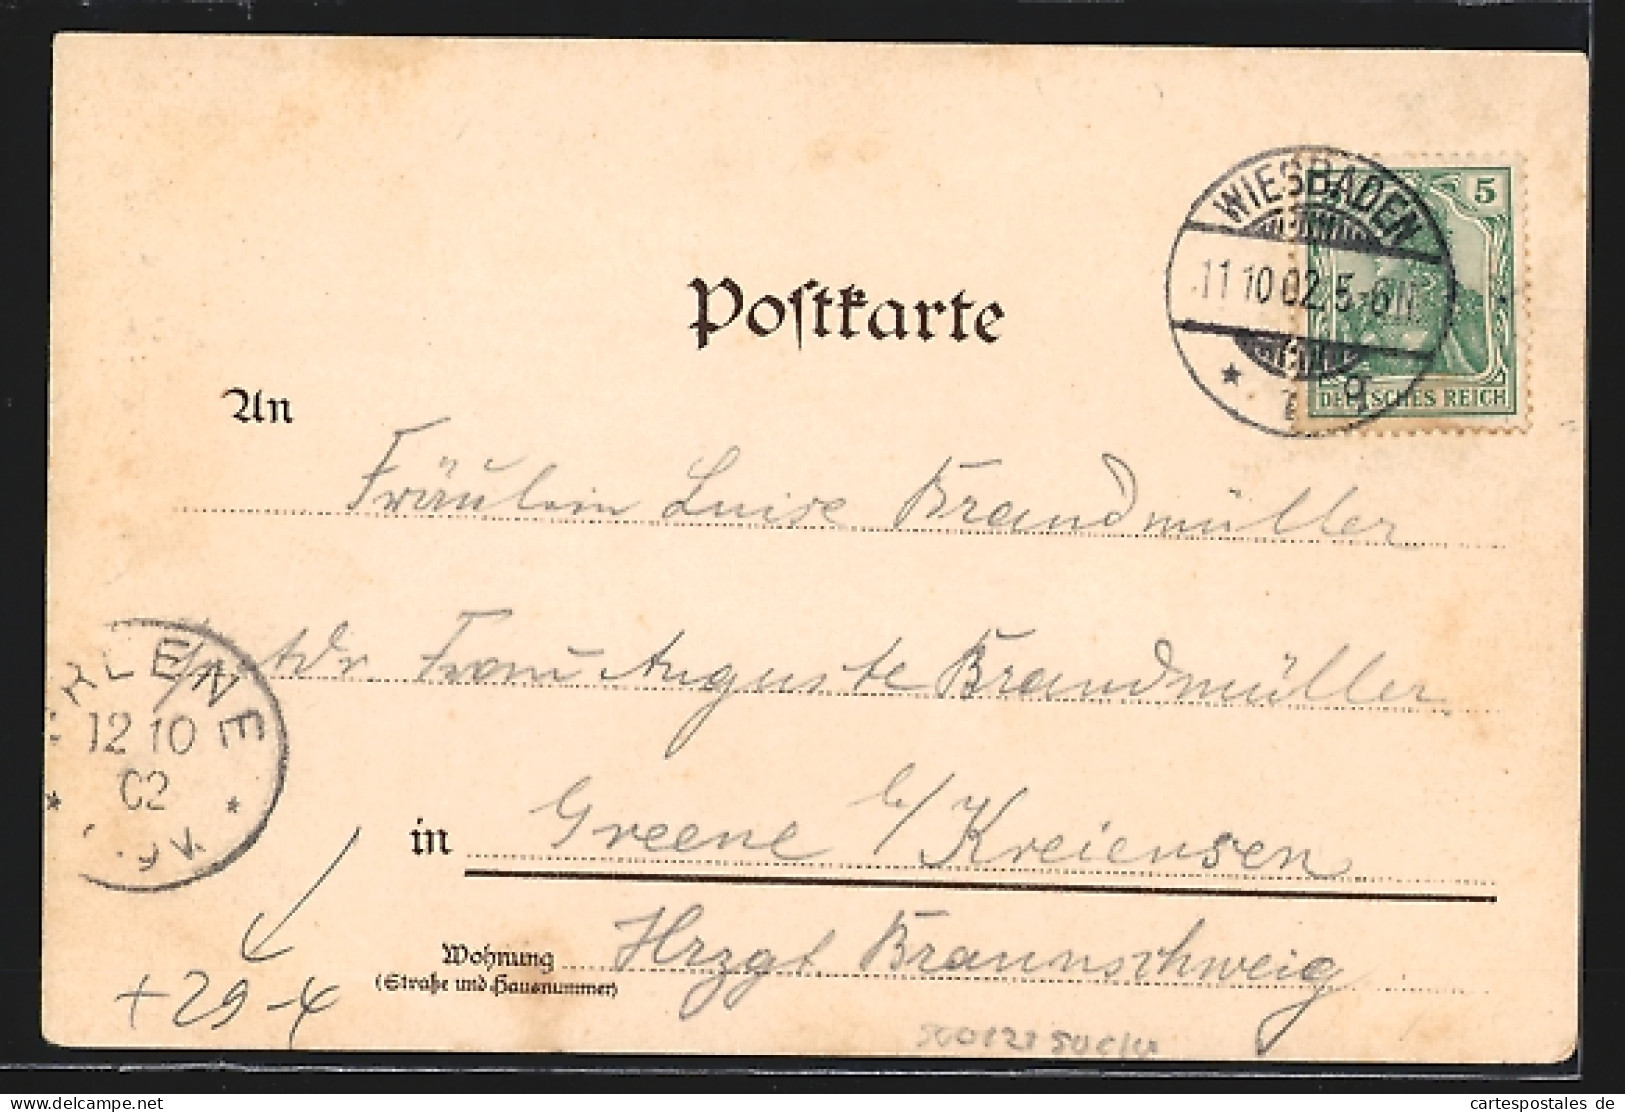 Postkarte
WIESBADEN
11 10 02. 5-6 N.
* 7 g
5
DEUTSCHES REICH
An
Fräulein Luise Brandmüller
Frau Auguste Brandmüller
in Greene b/Kreiensen
Wohnung Hrzgt Braunschweig
(Straße und Hausnummer)
12 10
02
+29-4
cartespostales de